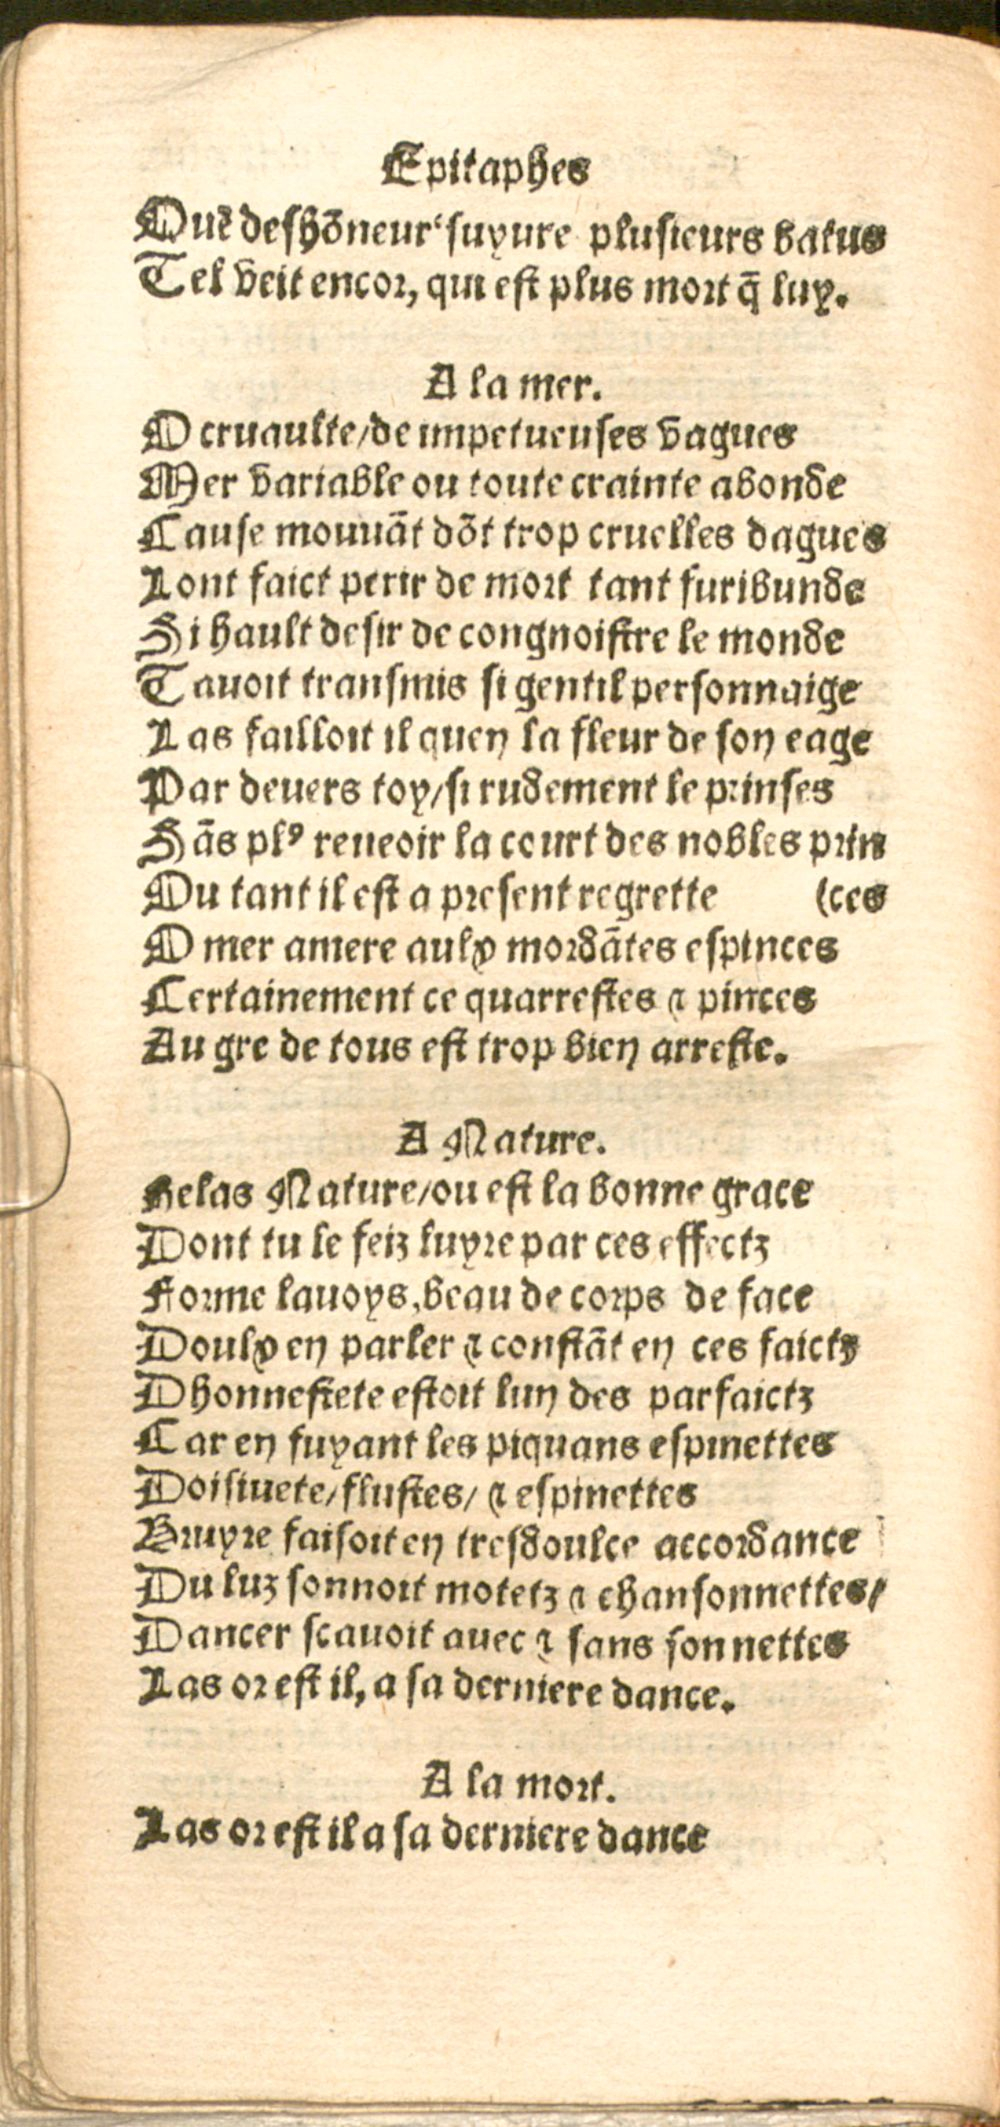 Epitaphes
Que deshõneur suyure plusieurs batus
Tel veit encor, qui est plus mort q̃ luy.
A la mer.
O cruaulte/de impetueuses vagues
Mer variable ou toute crainte abonde
Cause mouuãt dõt trop cruelles dagues
Lont faict perir de mort tant furibunde
Si hault desir de congnoistre le monde
Tauoit transmis si gentil personnaige
Las failloit il quen la fleur de son eage
Par deuers toy/si rudement le prinses
Sãs plꝰ reueoir la court des nobles prin
Ou tant il est a present regrette (ces
O mer amere aulx mordãtes espinces
Certainement ce quarrestes ⁊ pinces
Au gre de tous est trop bien arreste.
A Nature.
Helas Nature/ou est la bonne grace
Dont tu le feiz luyre par ces effectz
Forme lauoys, beau de corps de face
Doulx en parler ⁊ constãt en ces faictz
Dhonnestete estoit lun des parfaictz
Car en fuyant les piquans espinettes
Doisiuete/flustes/ ⁊ espinettes
Bruyre faisoit en tresdoulce accordance
Du luz sonnoit motetz ⁊ chansonnettes/
Dancer scauoit auec ⁊ sans sonnettes
Las or est il, a sa derniere dance.
A la mort.
Las or est il a sa derniere dance